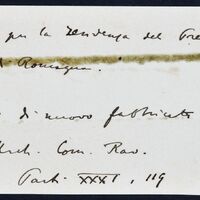 per la Tendenza del Tre
di Romagna.
di nuovo fabbricato
Arch. Com. Rav.
Part. XXXI, 119